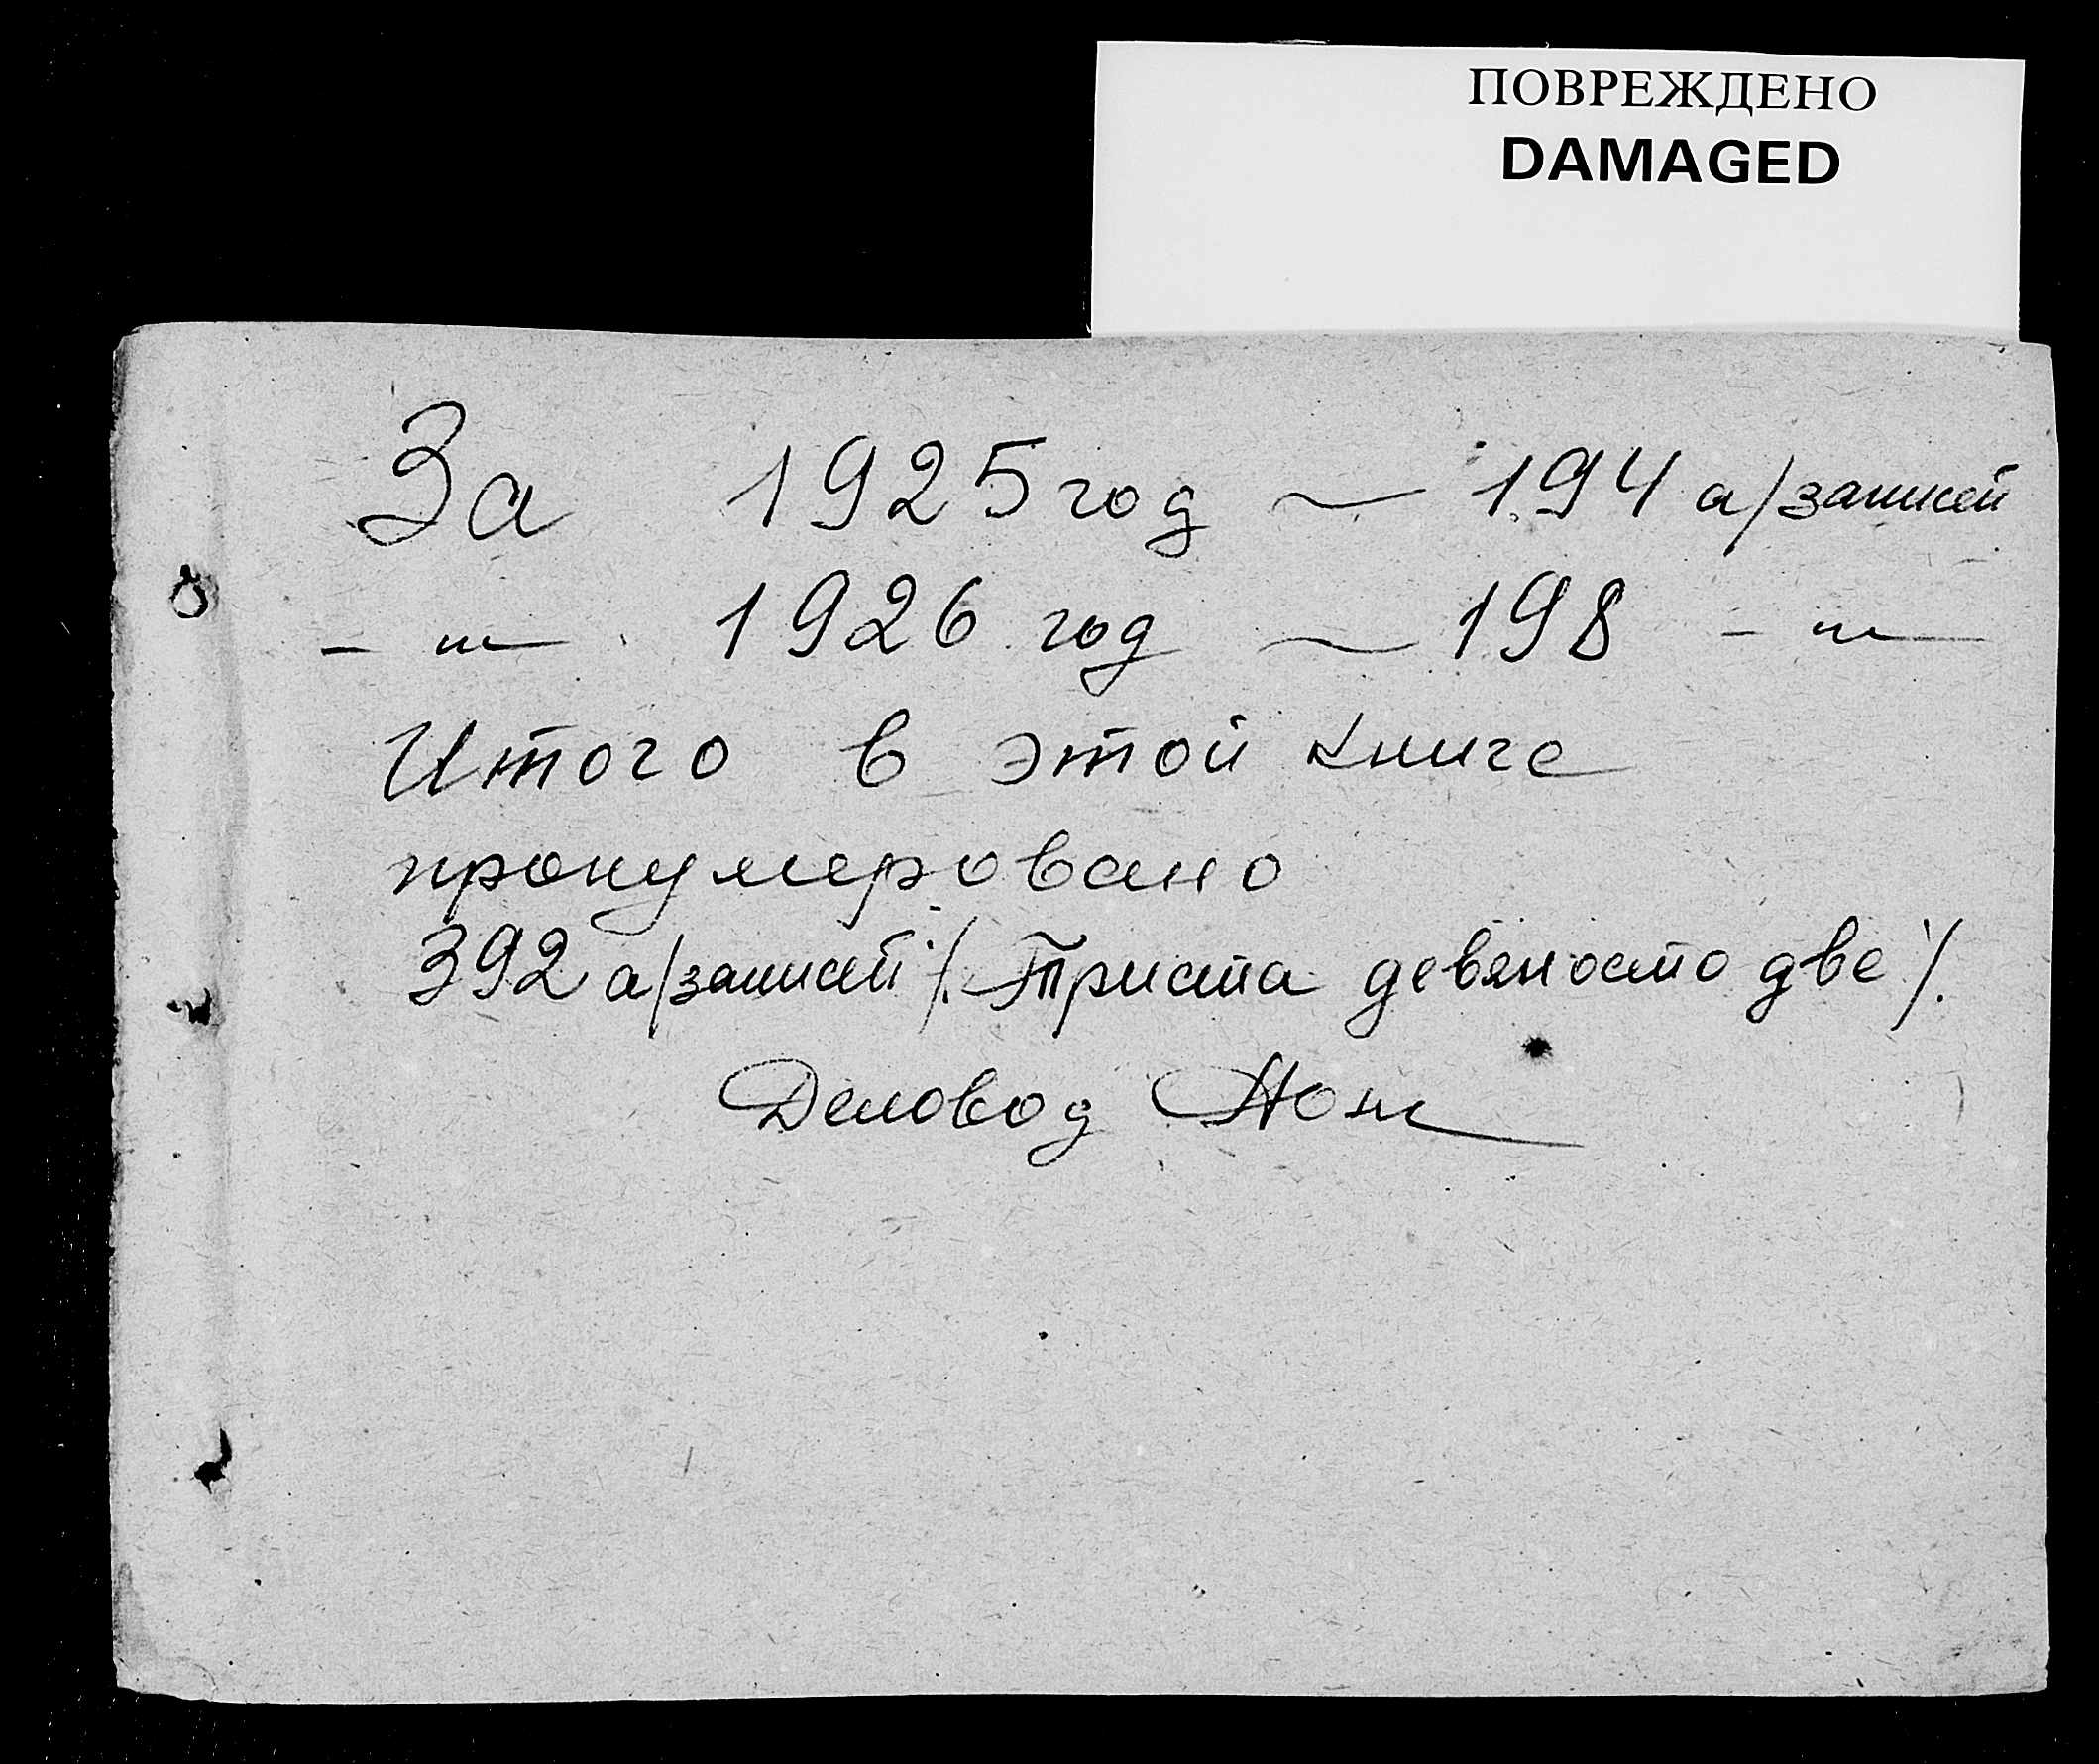 ПОВРЕЖДЕНО
DAMAGED
За 1925 год ~ 194 а/записей
- " - 1926 год ~ 198 - " -
Итого в этой книге
пронумеровано
392 а/записей /. Триста девяносто две /.
Деловод